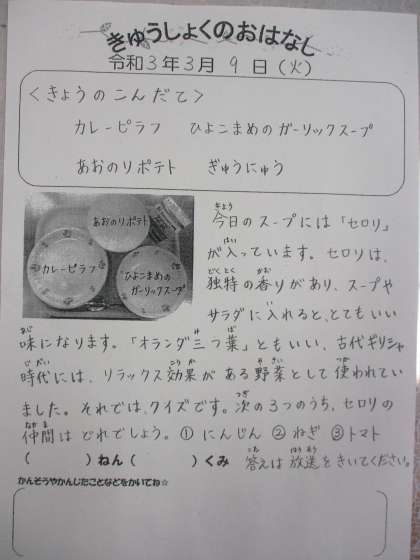 きゅうしょくのおはなし
令和3年3月9日(火)
<きょうのこんだて>
カレーピラフ ひよこまめのガーリックスープ
あおのりポテト ぎゅうにゅう
あおのりポテト
カレーピラフ
ひよこまめの
ガーリックスープ
今日のスープには「セロリ」
が入っています。セロリは、
独特の香りがあり、スープや
サラダに入れると、とてもいい
味になります。「オランダ三つ葉」ともいい、古代ギリシャ
時代には、リラックス効果がある野菜として使われてい
ました。それでは、クイズです。次の3つのうち、セロリの
仲間はどれでしょう。①にんじん ②ねぎ ③トマト
( )ねん( )くみ 答えは放送をきいてください。
かんそうやかんじたことなどをかいてね☆